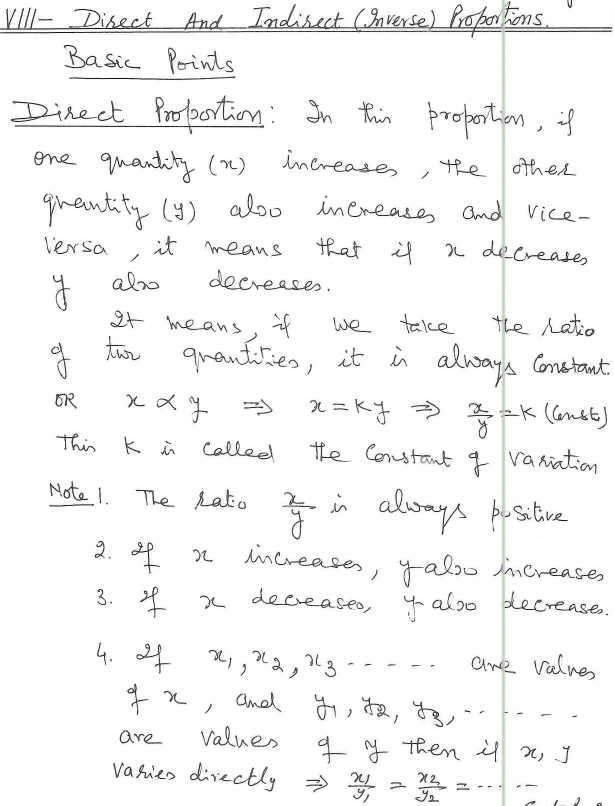 VIII- Direct And Indirect (Inverse) Proportions.
Basic Points
Direct Proportion: In this proportion, if
one quantity (x) increases, the other
quantity (y) also increases and vice-
versa, it means that if x decreases
y also decreases.
It means, if we take the ratio
of two quantities, it is always Constant.
OR x ∝ y ⇒ x = Ky ⇒ x/y = K (Const)
This K is called the Constant of Variation
Note 1. The ratio x/y is always positive
2. If x increases, y also increases
3. If x decreases, y also decreases.
4. If x1, x2, x3 ----- are values
of x, and y1, y2, y3, -----
are values of y then if x, y
Varies directly ⇒ x1/y1 = x2/y2 = -----